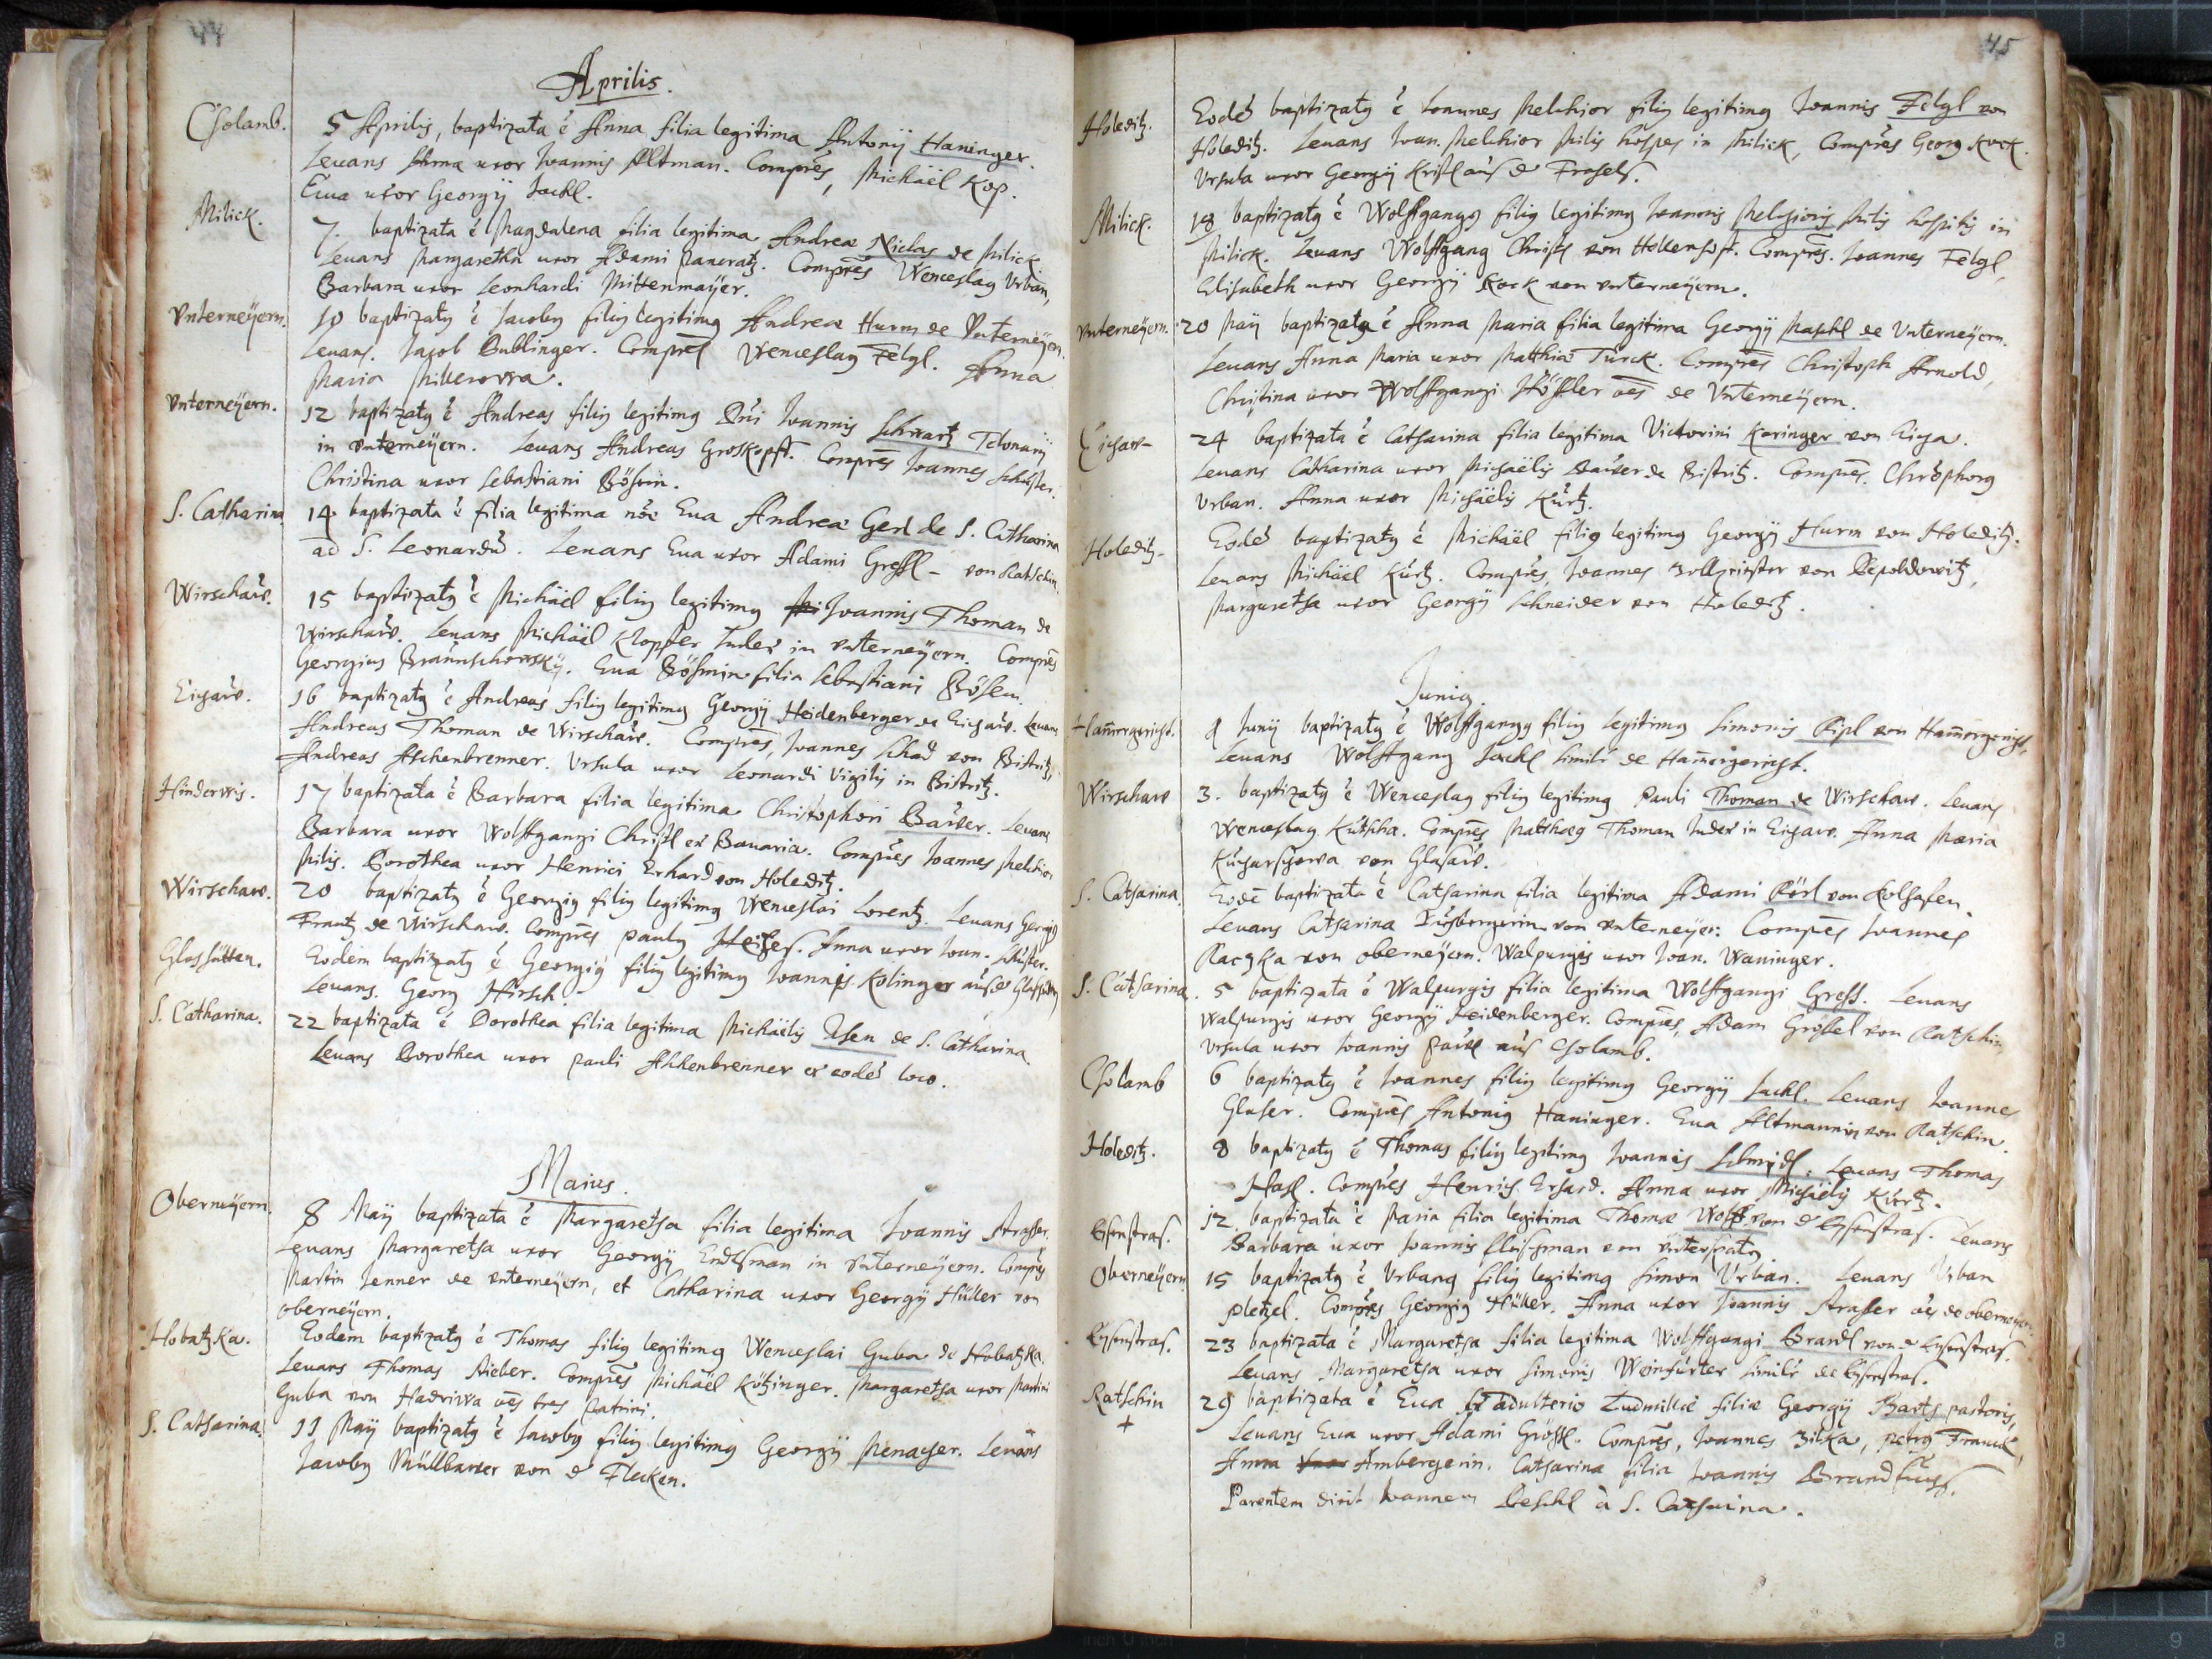 44
Aprilis.
Cholamb.
5 Aprilis, baptizata ē Anna filia legitima Antonij Haninger.
Leuans Anna uxor Ioannis Altman. Compres, Michaël Kop.
Eua uxor Georgij Jackl.
Milick.
7. baptizata ē Magdalena filia legitima Andreæ Niclas de Milick.
Leuans Margaretha uxor Adami Pancratz. Compres Wenceslaq Urban,
Barbara uxor Leonhardi Mittenmaÿer.
Vnterneÿern.
10 baptizatq ē Iacobq filiq legitimq Andreæ Hurm de Vnterneÿern.
Leuans. Jacob Bublinger. Compres Wenceslaq Felgl. Anna
Maria
Vnterneÿern.
12 baptizatq ē Andreas filiq legitimq Dni Ioannis Schwartz Telonarij
in Vnterneÿern. Leuans Andreas Groskopff. Compres Ioannes Schuster.
Christina uxor Sebastiani Böhm.
S. Catharina
14 baptizata ē filia legitima nōe Eua Andreæ Gerl de S. Catharina
ad S. Leonardū. Leuans Eua uxor Adami Gressl - von Ratschin.
Wirschaw.
15 baptizatq ē Michaël filiq legitimq Ioannis Thoman de
Wirschaw. Leuans Michaël Klopffer Iudex in Vnterneÿern. Compres
Georgius Braunschowskÿ. Eua Böhmin filia Sebastiani Böhm.
Eisaw.
16 baptizatq ē Andreas filiq legitimq Georgij Heidenberger de Eisaw. Leuans
Andreas Thoman de Wirschaw. Compres, Ioannes Schad von Bistritz,
Andreas Aschenbrenner. Ursula uxor Leonardi Vigilis in Bistritz.
Hinderwis.
17 baptizata ē Barbara filia legitima Christophori Bauer. Leuans
Barbara uxor Wolffgangi Christl ex Bauaria. Compres Ioannes Melchior
Milis. Dorothea uxor Henrici Erhard von Holeditz.
Wirschaw.
20 baptizatq ē Georgiq filiq legitimq Wenceslai Lorentz. Leuans Georgiq
Frantz de Wirschaw. Compres Paulq. Anna uxor Ioan. Schuster.
Glashütten.
Eodem baptizatq ē Georgiq filiq legitimq Ioannis Kolinger
Leuans. Georg Hirsch.
S. Catharina.
22 baptizata ē Dorothea filia legitima Michaëlis de S. Catharina
Leuans Dorothea uxor Pauli Aschenbrenner ex eodē loco.
Maius.
Oberneÿern.
8 Maij baptizata ē Margaretha filia legitima Ioannis Strasser.
Leuans Margaretha uxor Georgij in Vnterneÿern. Compres
Martin Jenner de Vnterneÿern, et Catharina uxor Georgij Hüller von
oberneÿern.
Hobatzka.
Eodem baptizatq ē Thomas filiq legitimq Wenceslai Guba de Hobatzka.
Leuans Thomas Rieber. Compres Michaël Kötzinger. Margaretha uxor Martini
Guba von Hadriwa oēs tres patrini.
S. Catharina.
11 Maij baptizatq ē Iacobq filiq legitimq Georgij Menaser. Leuans
Iacobq Müllbauer von d Flecken.
45
Holeditz.
Eodē baptizatq ē Ioannes Melchior filiq legitimq Ioannis Felgl von
Holeditz. Leuans Ioan. Melchior Milis hospes in Milick, Compres Georg Kock.
Ursula uxor Georgij
Milick.
18 baptizatq ē Wolffgangq filiq legitimq Ioannis Melchioris Milis hospitis in
Milick. Leuans Wolffgang Christl von Hollenhoff. Compres. Ioannes Felgl,
Elisabeth uxor Georgij Kock von Vnterneÿern.
Vnterneÿern.
20 Maij baptizata ē Anna Maria filia legitima Georgij Maschl de Vnterneÿern.
Leuans Anna Maria uxor Matthiæ Türck. Compres Christoph Arnold,
Christina uxor Wolffgangi Höffler oēs de Vnterneÿern.
Eisaw
24 baptizata ē Catharina filia legitima Victorini Karinger von Eisa.
Leuans Catharina uxor Michaëlis Bauer de Bistritz. Compres. Christophorq
Urban. Anna uxor Michaëlis Kurtz.
Holeditz.
Eodē baptizatq ē Michaël filiq legitimq Georgij Hurm von Holeditz.
Leuans Michaël Kurtz. Compres, Ioannes von Depoldowitz,
Margaretha uxor Georgij Schneider von Holeditz.
Juniq
Ham̄ergericht.
1 Junij baptizatq ē Wolffgangq filiq legitimq Simonis Pipl von Ham̄ergericht.
Leuans Wolffgang Jackl similē de Ham̄ergericht.
Wirschaw
3. baptizatq ē Wenceslaq filiq legitimq Pauli Thoman de Wirschaw. Leuans
Wenceslaq Kutscha. Compres Matthæq Thoman Iudex in Eisaw. Anna Maria
von Glasaw.
S. Catharina.
Eodē baptizata ē Catharina filia legitima Adami
Leuans Catharina von Vnterneÿer: Compres Ioannes
Raczka von oberneÿern. Walpurgis uxor Ioan. Waninger.
S. Catharina.
5 baptizata ē Walpurgis filia legitima Wolffgangi Gress. Leuans
Walpurgis uxor Georgij Heidenberger. Compres, Adam Grössel von Ratschin,
Vrsula uxor Ioannis aus Cholamb.
Cholamb
6 baptizatq ē Ioannes filiq legitimq Georgij Jackl. Leuans Ioannes
Glaser. Compres Antoniq Haninger. Eua Altmannin von Ratschin.
Holeditz.
8 baptizatq ē Thomas filiq legitimq Ioannis Schmidl. Leuans Thomas
Hasl. Compres Henrich Erhard. Anna uxor Michaëlis Kurtz.
Eysenstras.
12 baptizata ē Maria filia legitima Thomæ Wolff von d Eysenstras. Leuans
Barbara uxor Ioannis
Oberneÿern
15 baptizatq ē Vrbanq filiq legitimq Simon Vrban. Leuans Vrban
Pletzel. Compres Georgiq Hüller. Anna uxor Ioannis Strasser oēs de oberneÿern.
Eysenstras.
23 baptizata ē Margaretha filia legitima Wolffgangi Brandl von d Eysenstras.
Leuans Margaretha uxor Simonis Weinfurter similē de Eysenstras.
Ratschin
+
29 baptizata ē Eua ex adulterio Ludmillæ filiæ Georgij pastoris,
Leuans Eua uxor Adami Grössl. Compres, Ioannes Zilka, Petrq Franck,
Anna Ambergerin. Catharina filia Ioannis
Parentem dixit Ioannem Beschl à S. Catharina.